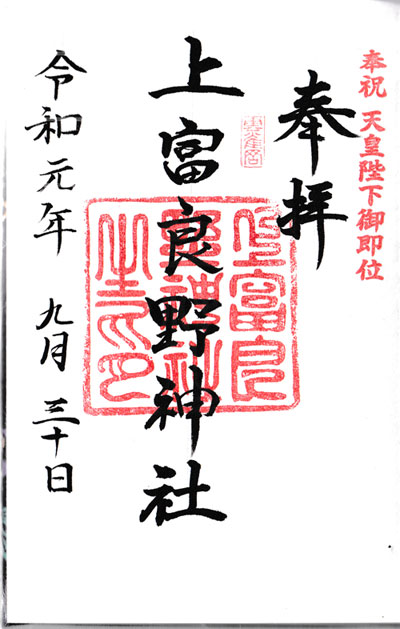 奉祝 天皇陛下御即位
奉拝
上富良野神社
上富良
野神社
之印
令和元年 九月 三十日